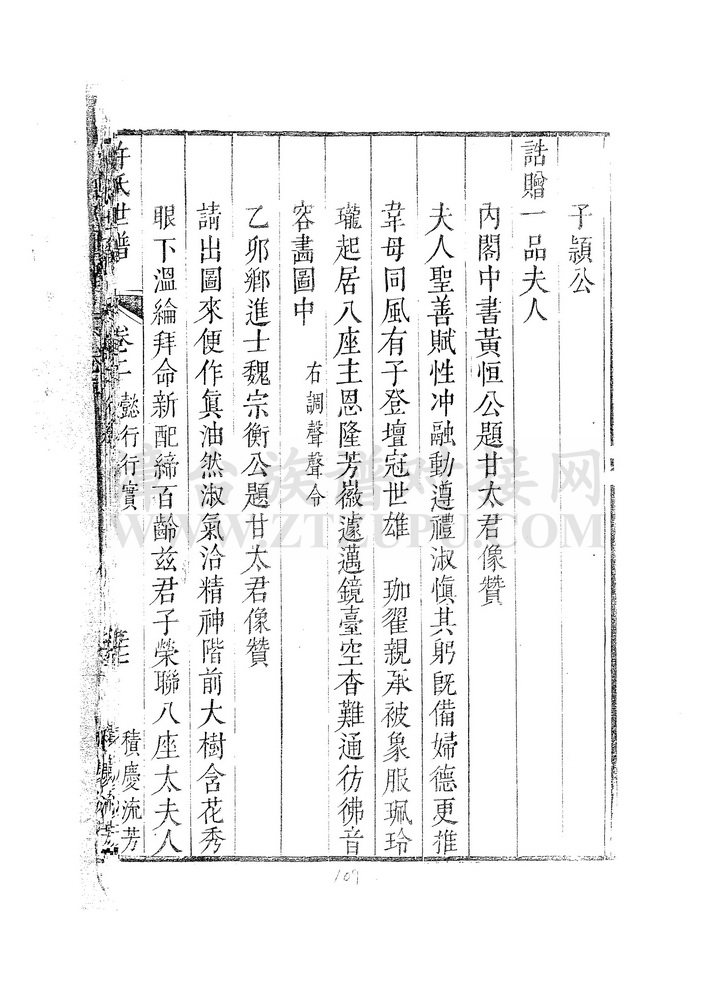 子頴公
誥贈一品夫人
內閣中書黃恒公題甘太君像贊
夫人聖善賦性冲融動遵禮淑愼其躬旣備婦德更推
韋母同風有子登壇冠世雄 珈翟親承被象服珮玲
瓏起居八座主恩隆芳徽遠邁鏡臺空杳難通彷彿音
容畵圖中 右調聲聲令
乙卯鄉進士魏宗衡公題甘太君像贊
請出圖來便作眞油然淑氣洽精神階前大樹含花秀
眼下溫綸拜命新配締百齡兹君子榮聯八座太夫人
許氏世譜 卷二 懿行行實 積慶流芳
109
章台族譜对接网
WWW.ZTZUPU.COM